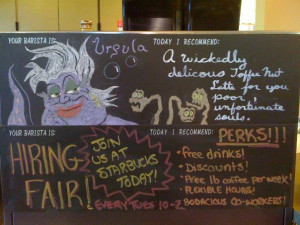 YOUR BARISTA IS:
Ursula
TODAY I RECOMMEND:
A wickedly
delicous Toffee Nut
Latte for you
poor,
unfortunate
souls.
YOUR BARISTA IS:
HIRING
FAIR!
JOIN
US AT
STARBUCKS
TODAY!
EVERY TUES 10-2
TODAY I RECOMMEND:
PERKS!!!
• free drinks!
• Discounts!
• Free 1lb coffee per week!
• FLEXIBLE HOURS!
• BODACIOUS CO-WORKERS!